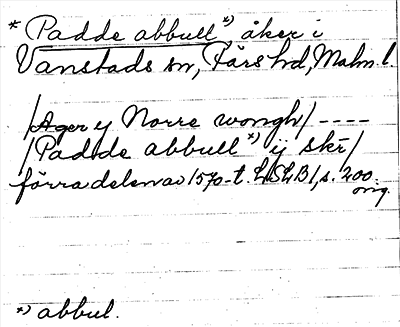 * Padde abbull *), åker i
Vanstads sn, Färs hd, Malm. l.
/Ager ij Norre wongh/ ----
/Padde abbull *) ij skr/
förra delen av 1570-t. LSLB1, s. 200.
orig.
*) abbul.